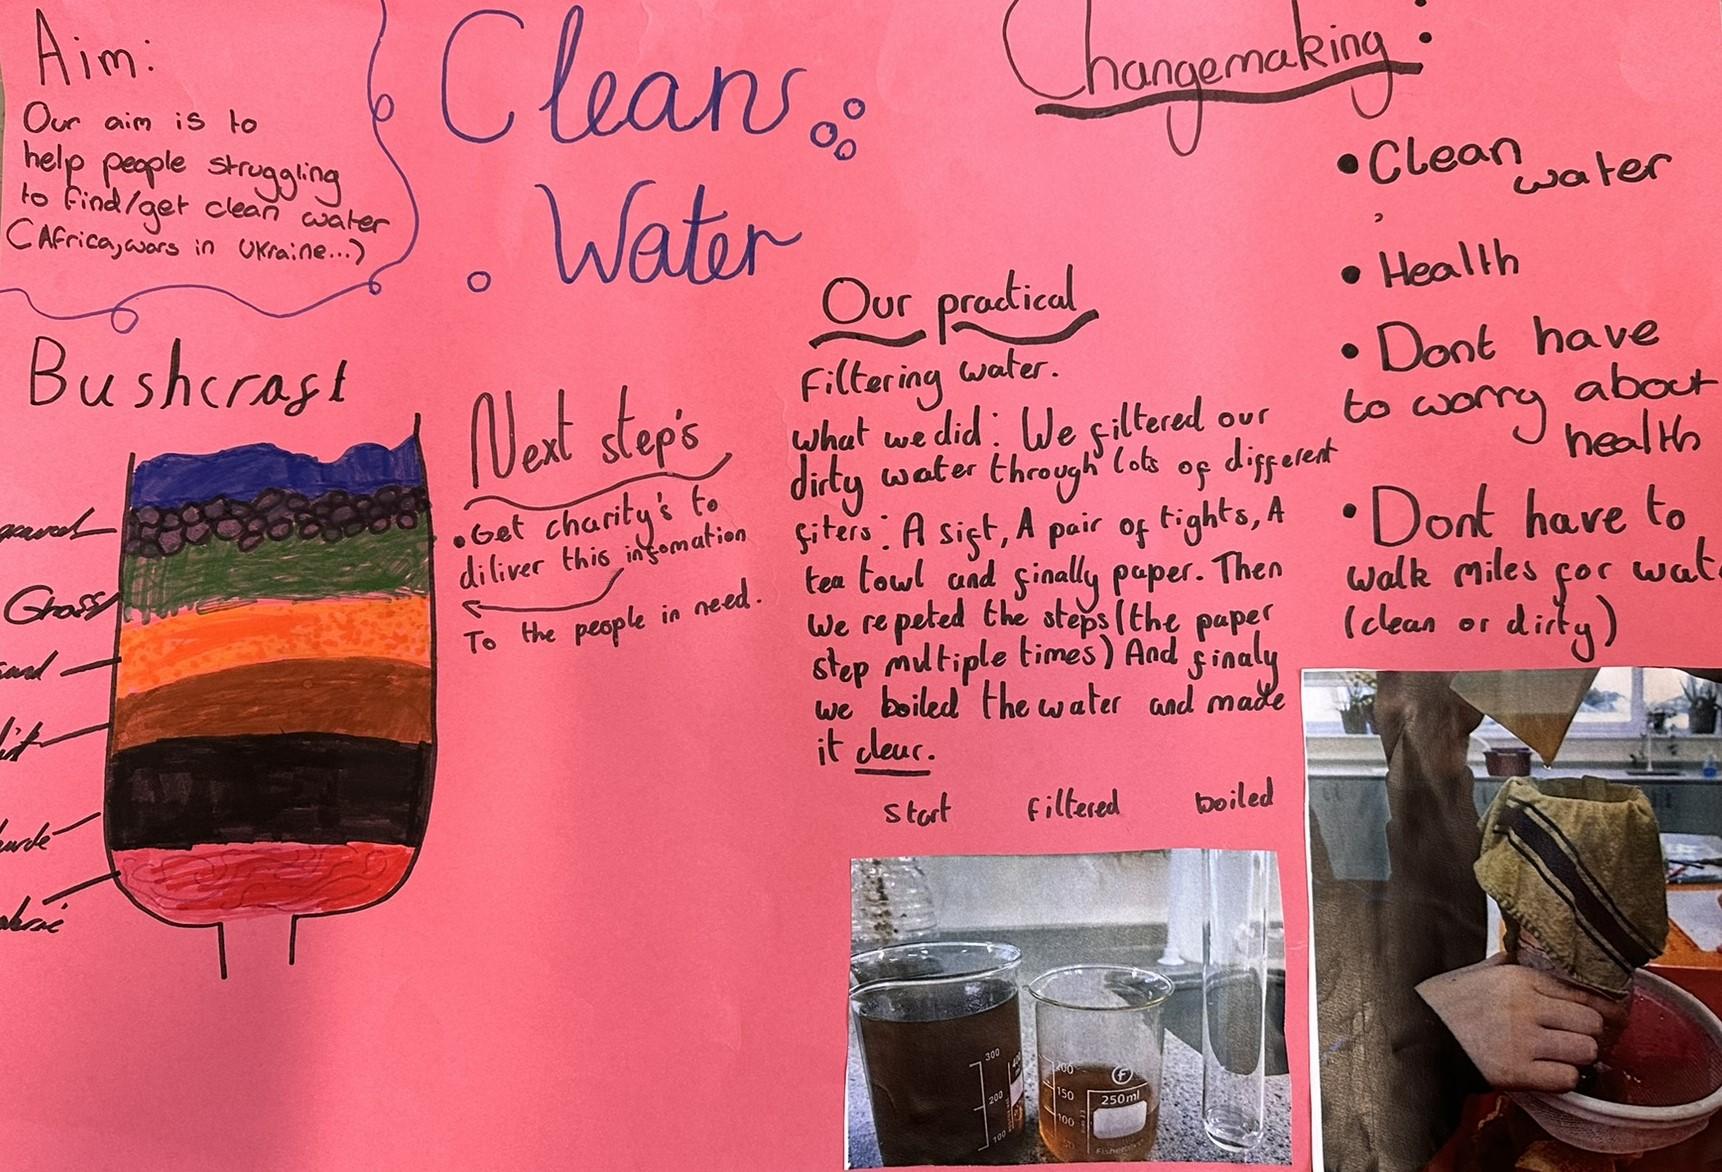 Aim:
Our aim is to
help people struggling
to find/get clean water
(Africa, wars in Ukraine...)
Clean
Water
Changemaking:
• Clean
water
• Health
• Dont have
to worry about
health
• Dont have to
walk miles for wat
(clean or dirty)
Bushcraft
Grass
Next step's
• Get charity's to
diliver this infomation
To the people in need.
Our practical
Filtering water.
what we did: We filtered our
dirty water through lots of different
fiters: A sift, A pair of tights, A
tea towl and finally paper. Then
we repeted the steps (the paper
step multiple times) And finaly
we boiled the water and made
it clear.
start filtered boiled
300
200
100
200
150
100
F
250ml